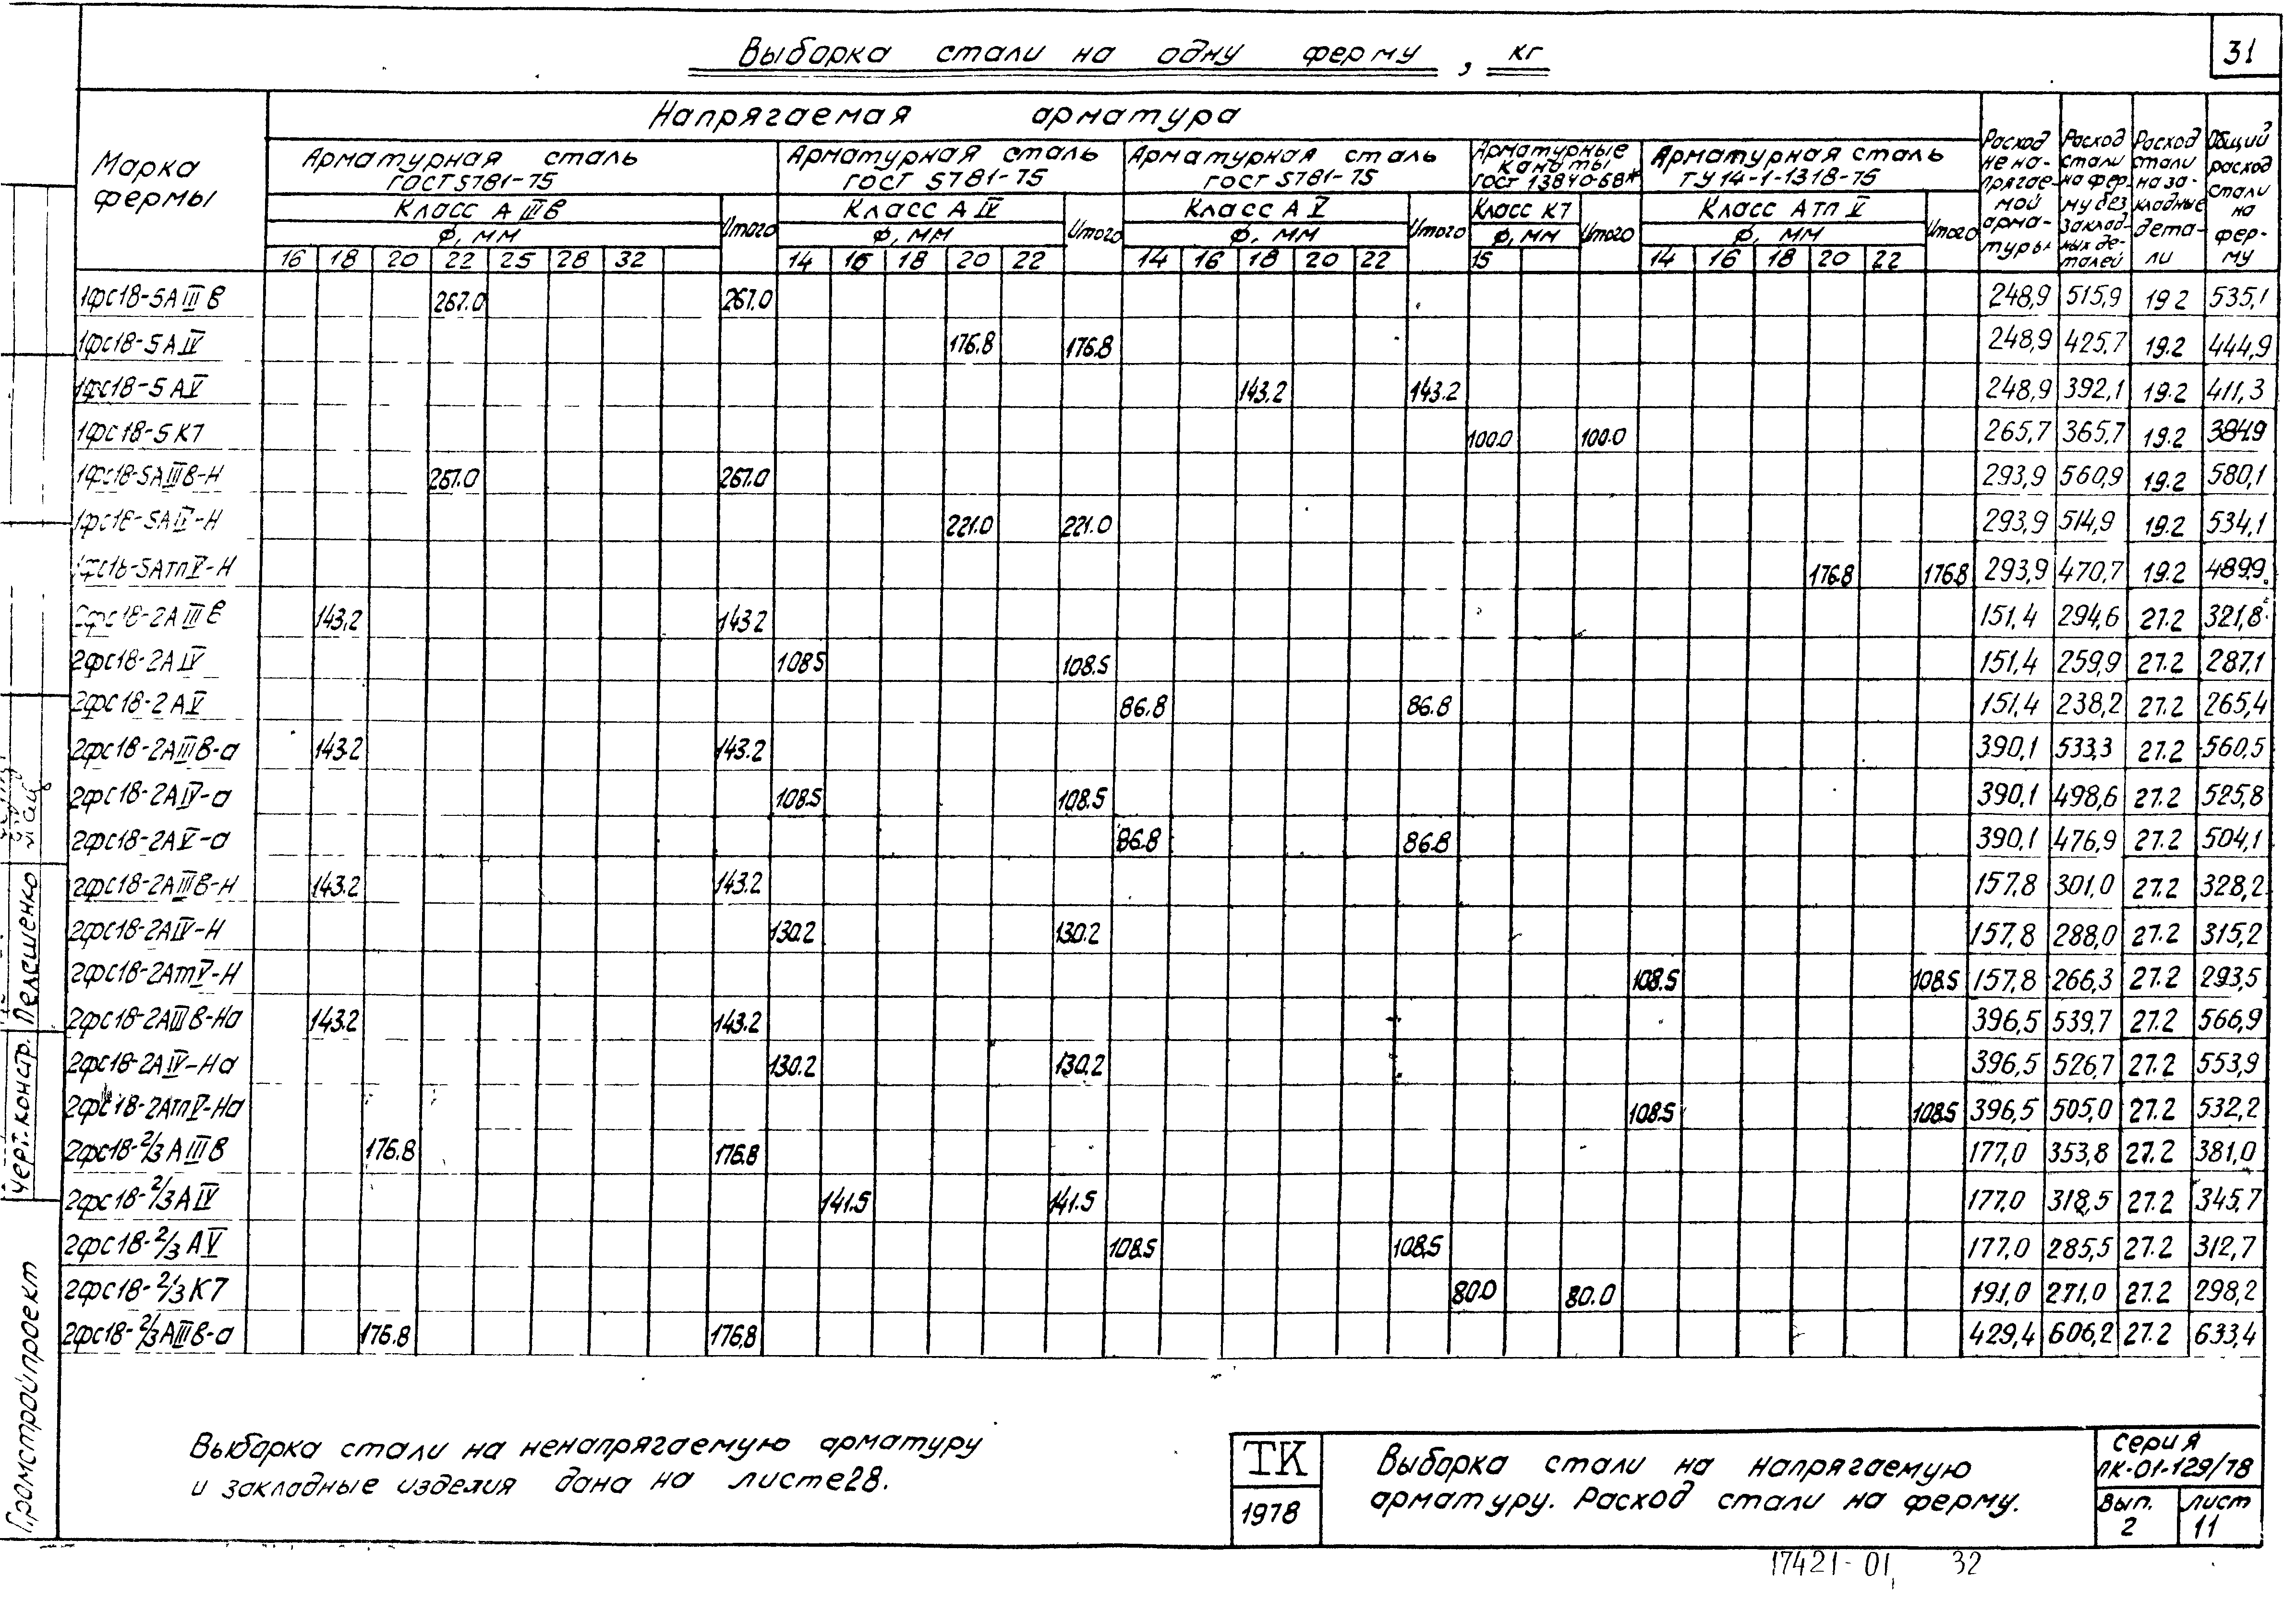 31
Выборка стали на одну ферму, кг
Марка фермы
Напрягаемая арматура
Арматурная сталь ГОСТ 5781-75
Класс А IIIв
ф, мм
16 18 20 22 25 28 32
Итого
Арматурная сталь ГОСТ 5781-75
Класс А IV
ф, мм
14 16 18 20 22
Итого
Арматурная сталь ГОСТ 5781-75
Класс А V
ф, мм
14 16 18 20 22
Итого
Арматурные канаты ГОСТ 13840-68*
Класс К7
ф, мм
15
Итого
Арматурная сталь ТУ 14-1-1318-75
Класс Атп V
ф, мм
14 16 18 20 22
Итого
Расход не напрягаемой арматуры
Расход стали на ферму без закладных деталей
Расход стали на закладные детали
Общий расход стали на ферму
1фс18-5А IIIв 267.0 267.0 248,9 515,9 19 2 535,1
1фс18-5А IV 176.8 176.8 248,9 425,7 19.2 444,9
1фс18-5 А V 143.2 143.2 248,9 392,1 19.2 411,3
1фс18-5 К7 100.0 100.0 265,7 365,7 19.2 384,9
1фс18-5А IIIв-Н 267.0 267.0 293,9 560,9 19.2 580,1
1фс18-5А IV-Н 221.0 221.0 293,9 514,9 19.2 534,1
1фс18-5Атп V-Н 176.8 176.8 293,9 470,7 19.2 489,9
2фс18-2А IIIв 143.2 143.2 151,4 294,6 27.2 321,8
2фс18-2А IV 108.5 108.5 151,4 259,9 27.2 287,1
2фс18-2 А V 86.8 86.8 151,4 238,2 27.2 265,4
2фс18-2А IIIв-а 143.2 143.2 390,1 533,3 27.2 560,5
2фс18-2А IV-а 108.5 108.5 390,1 498,6 27.2 525,8
2фс18-2А V-а 86.8 86.8 390,1 476,9 27.2 504,1
2фс18-2А IIIв-Н 143.2 143.2 157,8 301,0 27.2 328,2
2фс18-2А IV-Н 130.2 130.2 157,8 288,0 27.2 315,2
2фс18-2Ат V-Н 108.5 108.5 157,8 266,3 27.2 293,5
2фс18-2А IIIв-На 143.2 143.2 396,5 539,7 27.2 566,9
2фс18-2А IV-На 130.2 130.2 396,5 526,7 27.2 553,9
2фс18-2Атп V-На 108.5 108.5 396,5 505,0 27.2 532,2
2фс18-2/3 А IIIв 176.8 176.8 177,0 353,8 27.2 381,0
2фс18-2/3 А IV 141.5 141.5 177,0 318,5 27.2 345,7
2фс18-2/3 А V 108.5 108.5 177,0 285,5 27.2 312,7
2фс18-2/3 К7 80.0 80.0 191,0 271,0 27.2 298,2
2фс18-2/3 А IIIв-а 176.8 176,8 429,4 606,2 27.2 633,4
Выборка стали на ненапрягаемую арматуру
и закладные изделия дана на листе 28.
ТК
1978
Выборка стали на напрягаемую
арматуру. Расход стали на ферму.
Серия
ПК-01-129/78
Вып. 2
Лист 11
17421-01 32
Черт. констр. Пелешенко
Промстройпроект